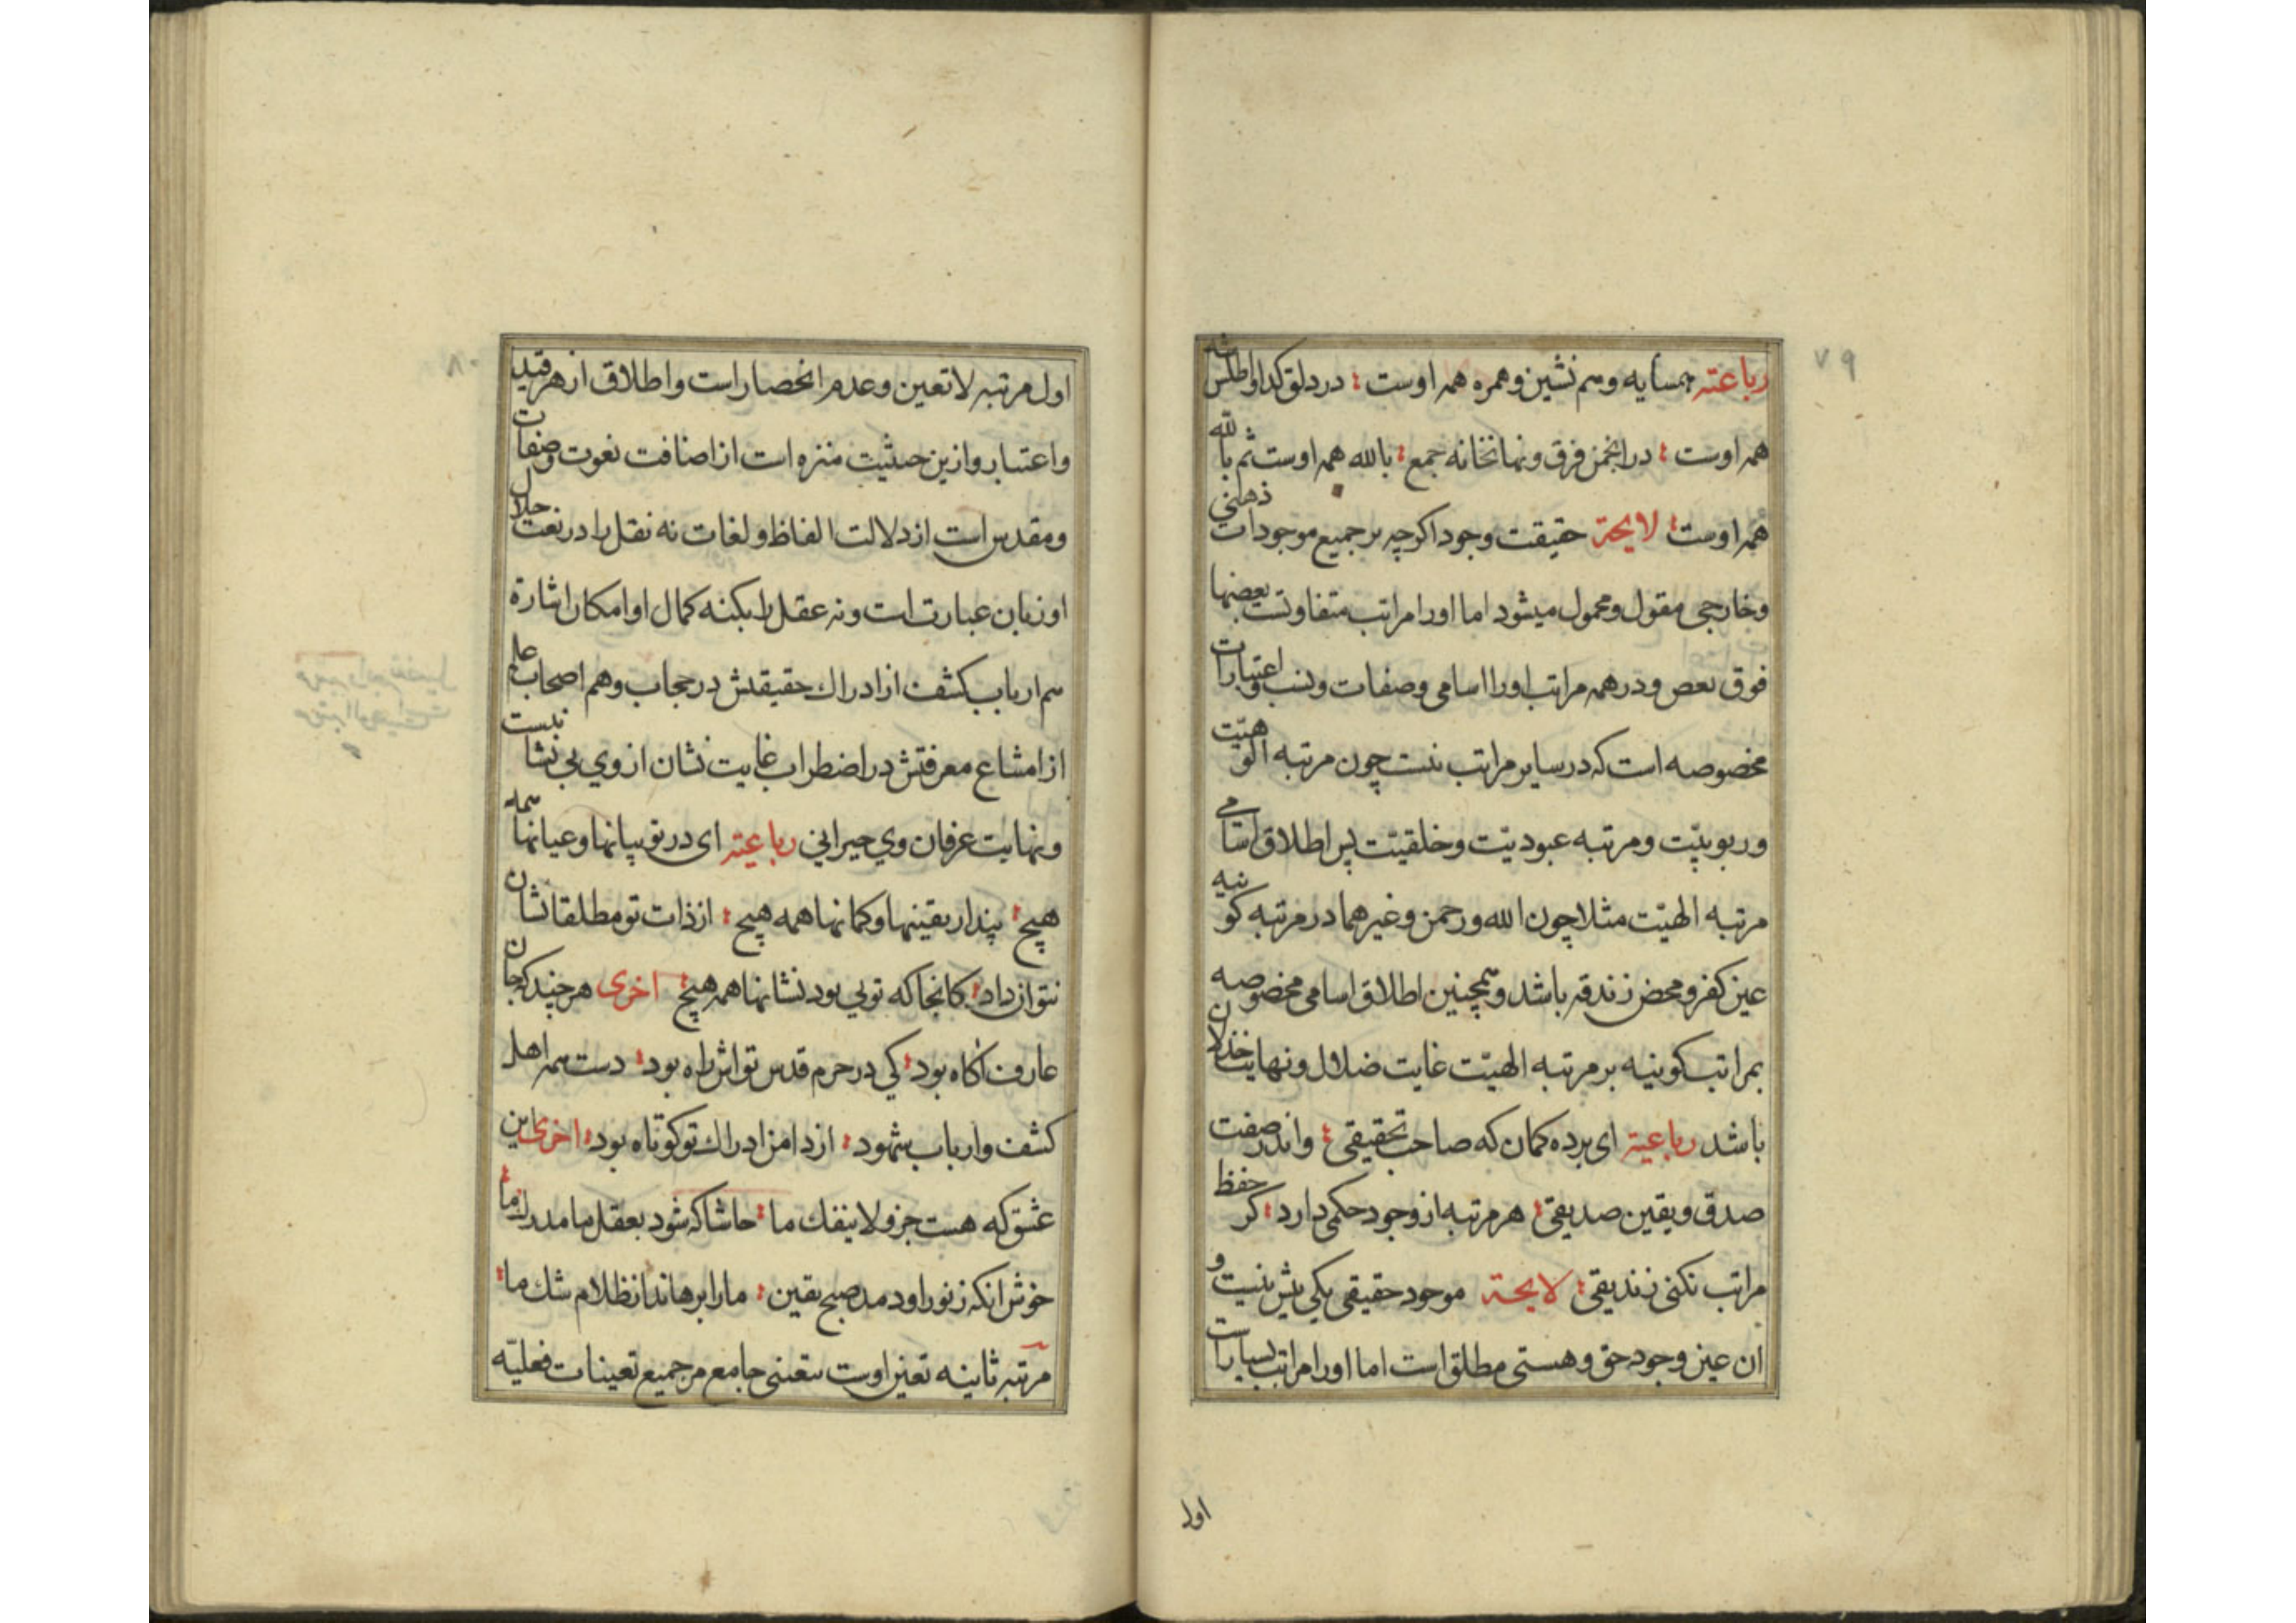 ۷۹
رباعیّه همسایه و همنشین و همره همه اوست : در دلق کدا و اطلس شه
همه اوست : در انجمن فرق و نهانخانه جمع : بالله همه اوست ثم بالله
همه اوست : لایحة حقیقت وجود اکرچه بر جمیع موجودات ذهنی
و خارجی مقول و محمول میشود اما او را مراتب متفاوتست بعضها
فوق بعض و در همه مراتب او را اسامی و صفات و نسب و اعتبارات
مخصوصه است که در سایر مراتب نیست چون مرتبه الوهیّت
و ربوبیّت و مرتبه عبودیّت و خلقیّت پس اطلاق اسامی
مرتبه الهیّت مثلا چون الله و رحمن و غیرهما در مرتبه کونیه
عین کفر و محض زندقه باشد و همچنین اطلاق اسامی مخصوصه
بمراتب کونیه بر مرتبه الهیّت غایت ضلال و نهایت خذلان
باشد رباعیّة ای برده کمان که صاحب تحقیقی : واندر صفت
صدق و یقین صدیقی : هر مرتبه از وجود حکمی دارد : کر حفظ
مراتب نکنی زندیقی : لایحة موجود حقیقی یکی بیش نیست و
ان عین وجود حق و هستی مطلق است اما او را مراتب بسیار است
اول
۸۰
اول مرتبه لا تعین و عدم انحصار است و اطلاق از هر قید
و اعتبار و ازین حیثیت منزه است از اضافت نعوت و صفات
و مقدس است از دلالت الفاظ و لغات نه نقل را در نعت جلال
او زبان عبارت است و نه عقل را بکنه کمال او امکان اشارة
هم ارباب کشف از ادراك حقیقتش در حجاب و هم اصحاب علم
از امتناع معرفتش در اضطراب غایت نشان از وي بی نشانیست
و نهایت عرفان وي حیرانی رباعیّه ای در تو بیانها و عیانها همه
هیچ : پندار یقینها و کمانها همه هیچ : از ذات تو مطلقا نشان
نتوان داد : کانجا که تویی بود نشانها همه هیچ : اخری هر چند که جان
عارف اکاه بود : کی در حرم قدس تواش راه بود : دست همه اهل
کشف و ارباب شهود : از دامن ادراك تو کوتاه بود : اخری این
عشق که هست جزو لا ینفك ما : حاشا که شود بعقل ما مدرك ما :
خوش انکه ز نور او دمد صبح یقین : ما را برهاند از ظلام شك ما :
مرتبه ثانیه تعین اوست بتعینی جامع مر جمیع تعینات فعلیّه